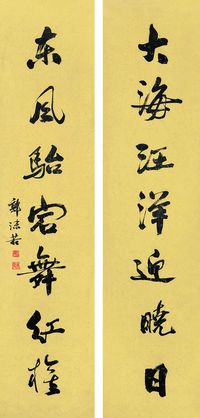 大海汪洋迎曉日
东风駘宕舞红旗
郭沫若